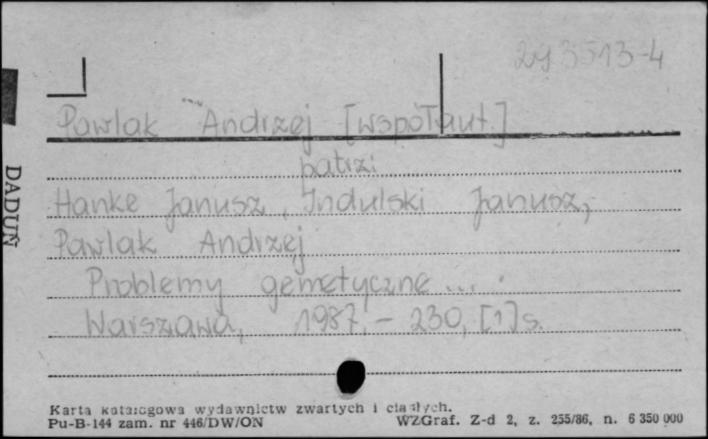 293513-4
Pawlak Andrzej [współaut.]
patrzi
Hanke Janusz, Indulski Janusz,
Pawlak Andrzej
Problemy gemetyczne ... .
Warszawa, 1987.- 230, [1] s.
DADUŃ
Karta katalogowa wydawnictw zwartych i ciągłych.
Pu-B-144 zam. nr 446/DW/ON WZGraf. Z-d 2, z. 255/86, n. 6 350 000